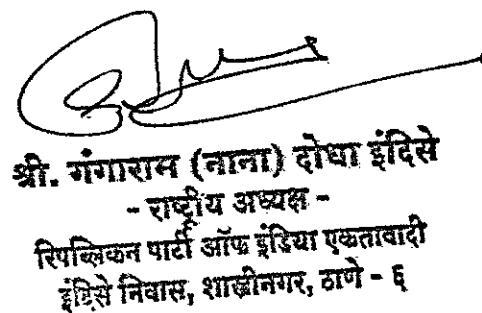 श्री. गंगाराम (नाना) दोधा इंदिसे
- राष्ट्रीय अध्यक्ष -
रिपब्लिकन पार्टी ऑफ इंडिया एकतावादी
इंदिसे निवास, शास्त्रीनगर, ठाणे - ६